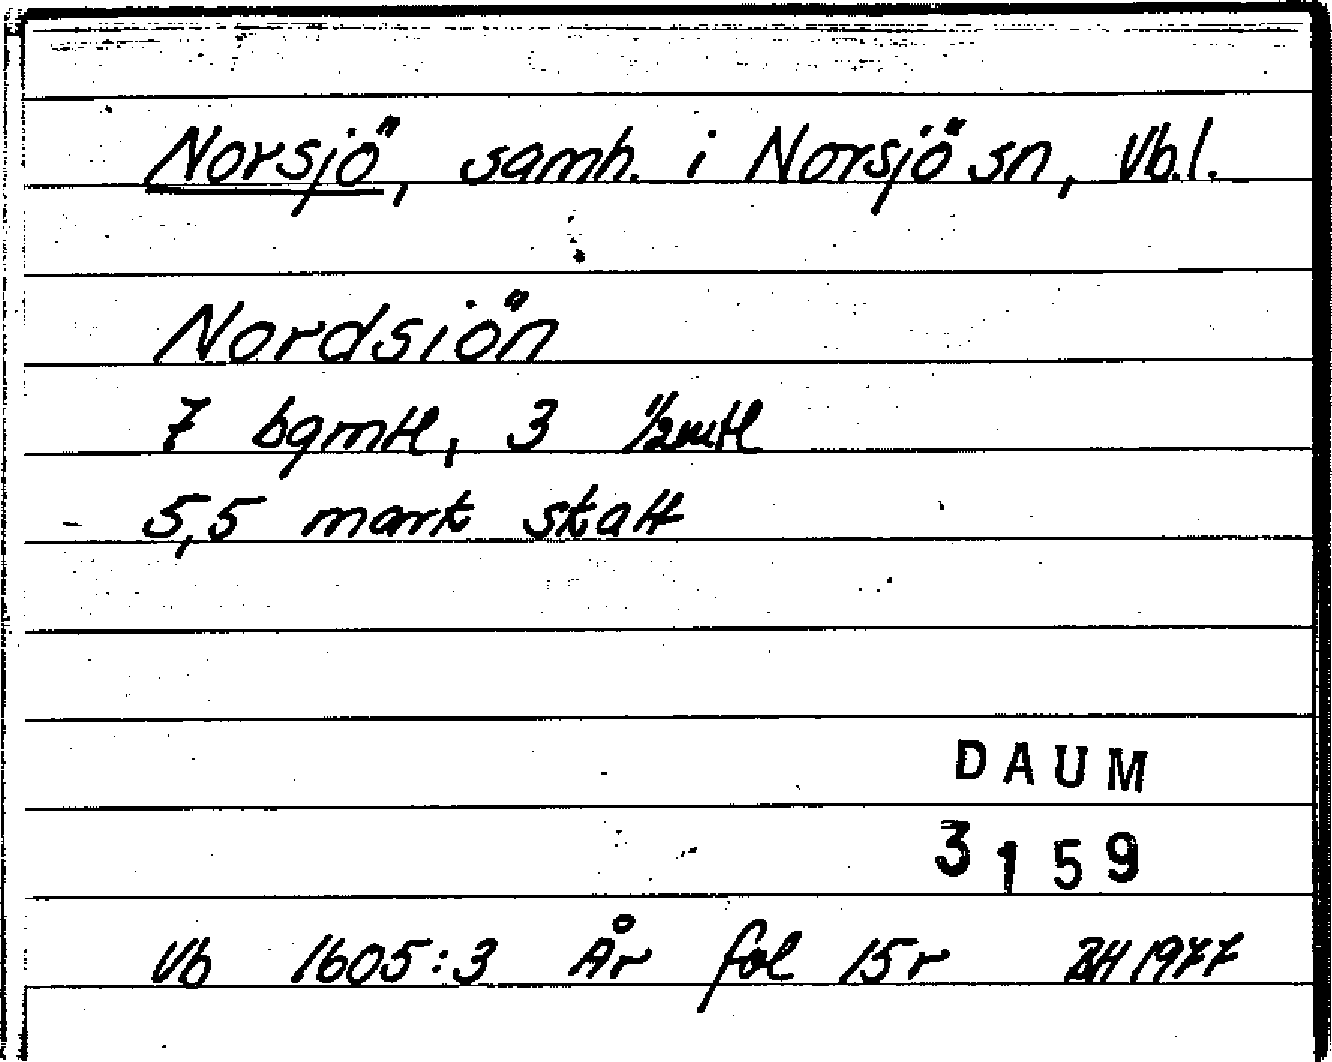 Norsjö, samh. i Norsjö sn, Vb.l.
Nordsiön
7 bgmtl, 3 1/2mtl
5,5 mark skatt
DAUM
3159
Vb 1605:3 År fol 15r BH 1977